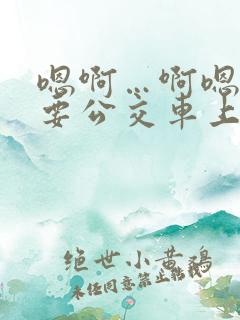 嗯啊…啊嗯
要公交车上
绝世小黄鸡
未经同意禁止转载